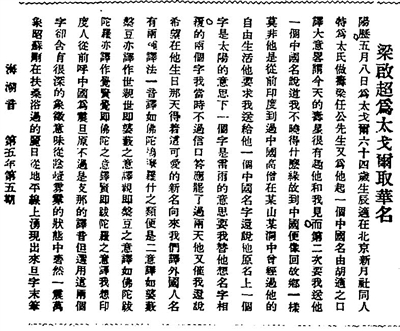 梁啟超爲太戈爾取華名
陽歷五月八日爲太戈爾六十四歲生辰適在北京新月社同人
特爲太氏做壽梁任公先生又爲他起一個中國名由胡適之口
譯大意畧謂今天的壽星很有趣他和我見面第二次要我送他
一個中國名說道我不曉得什麼緣故到中國便像回故鄉一樣
莫非他是從前印度到過中國高僧在某山某洞中曾經過他的
自由生活他要求我送給他一個中國名字還說他原名上一個
字是太陽的意思下一個字是雷雨的意思要我替他想名字相
覆的兩個字我當時不過信口答應罷了過兩天他又催我還說
希望在他生日那天得着這可愛的新名向來我們譯外國人名
有兩種譯法一音譯如佛陀鳩摩羅什之類便是二意譯如婆藪
槃豆亦譯作世親世即婆藪之意譯親即槃豆之意譯如佛陀跋
陀羅亦譯作覺賢覺即佛陀之意譯賢即跋陀羅之意譯我想印
度人從前呼中國爲震旦原不過是支那的譯音但選用這兩個
字卻含有很深的象徵意味從陰曀雰霾的狀態中砉然一震萬
象昭蘇剛在扶桑浴過的麗日從地平線上湧現出來旦字末筆
海潮音 第五年第五期